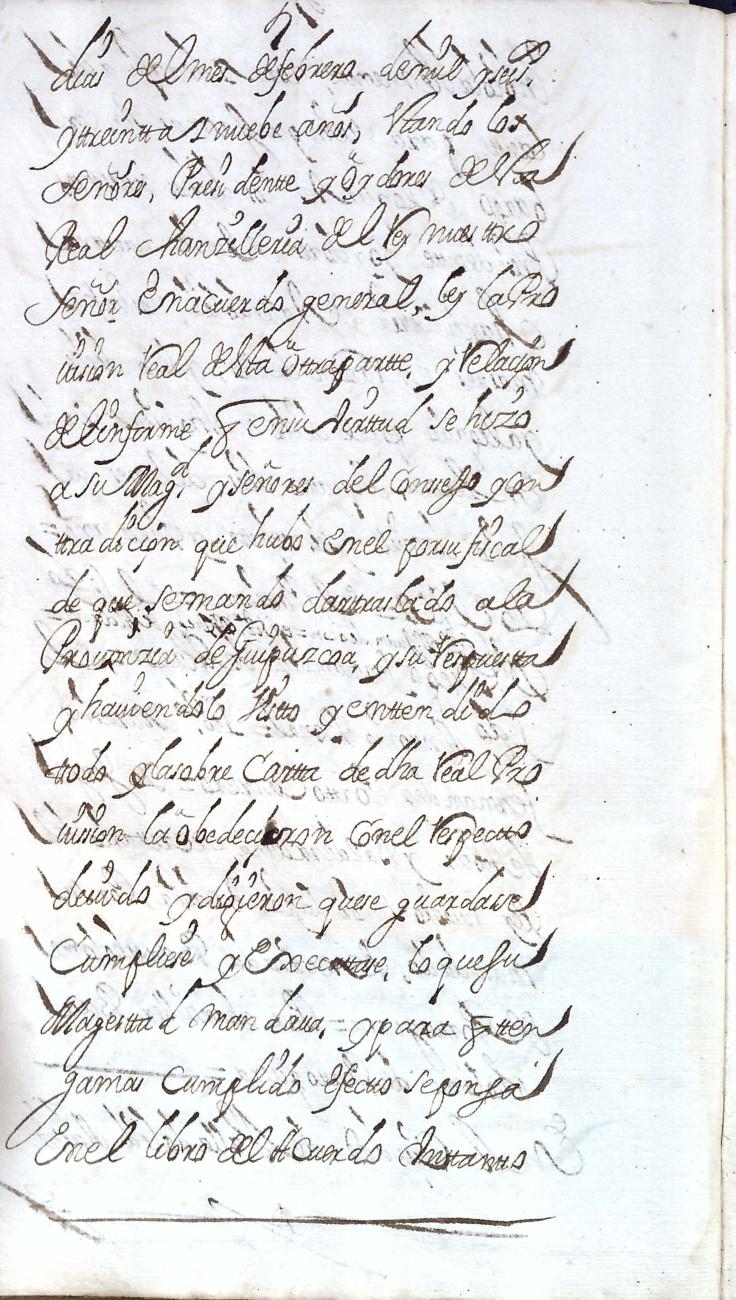 dias del mes de febrero de mil y seis.
y ttreintta y nuebe años, Vtando los
señores, Presidentte y oydores de la
Real chanzilleria del Rey nuesttro
señor En acuerdo general, ley la Pro
uision Real desta otra partte, y Relazion
del informe q en su virttud se hizo
a su Magd y señores del Conssejo y con
ttradicion que hubo en el por su fiscal
de que se mando dar traslado a la
Prouinzia de Guipuzcoa, y su Respuestta
y hauiendolo Vistto y enttendido
ttodo y la sobre Cartta de dha Real Pro
uision la obedecieron con el Respectto
deuido y dixeron que se guardase
Cumpliese y Executtase, lo que su
Magesttad Mandaua, = y para q tten
ga mas Cumplido efectto se ponga
En el libro del Acuerdo